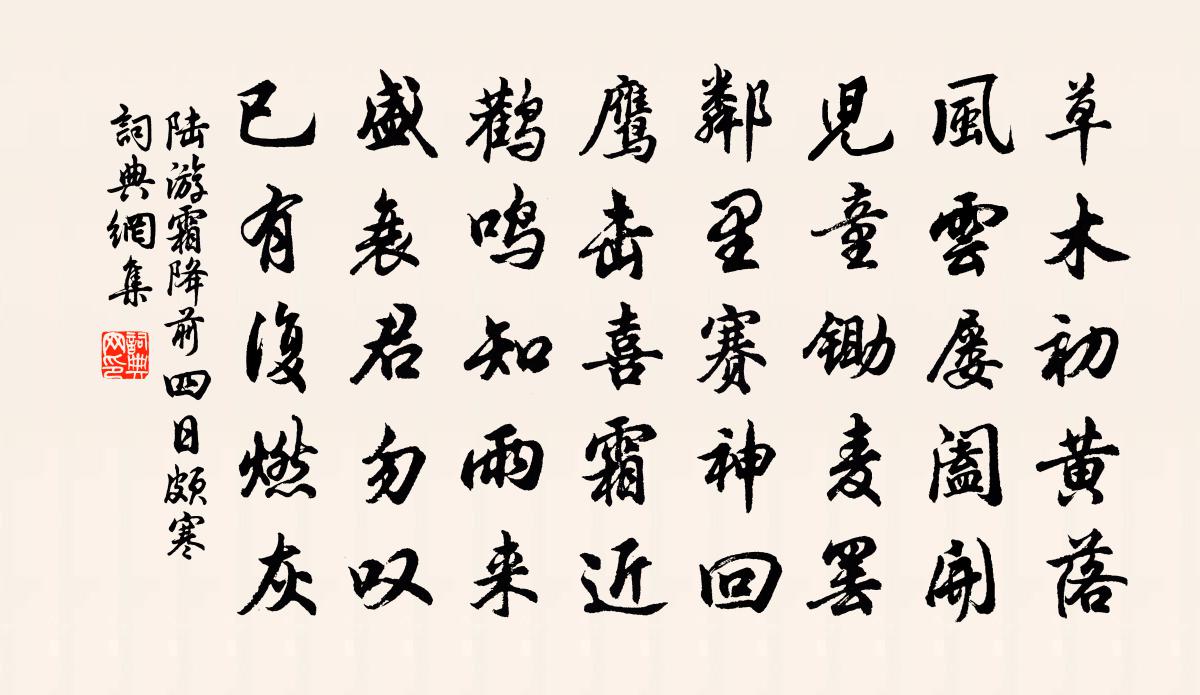 草木初黄落
風雲屡阖開
児童锄麦罢
鄰里赛神回
鹰击喜霜近
鹳鸣知雨来
盛衰君勿叹
已有復燃灰
陆游霜降前四日颇寒
詞典網集
詞典网印